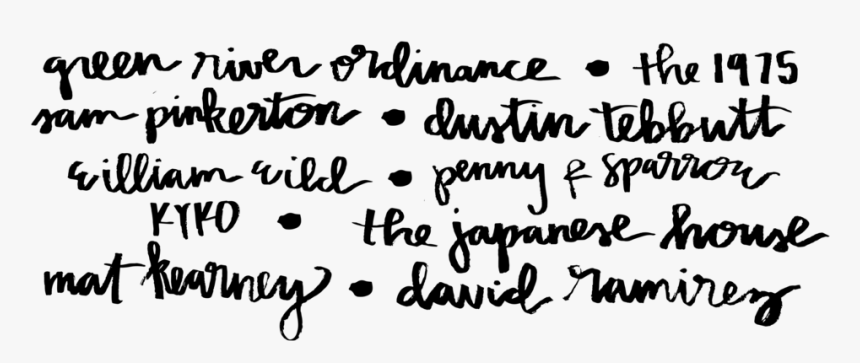 green river ordinance • the 1975
sam pinkerton • dustin tebbutt
william wild • penny & sparrow
KYKO • the japanese house
mat kearney • david ramirez